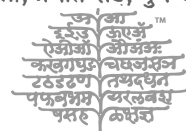 अ आ ™
इईउ ऊएअॅ
ऐओऑ औअंअः
कखगघङ चछजझञ
टठडढण तथदधन
पफबभम यरलवश
षसह ळक्षज्ञ